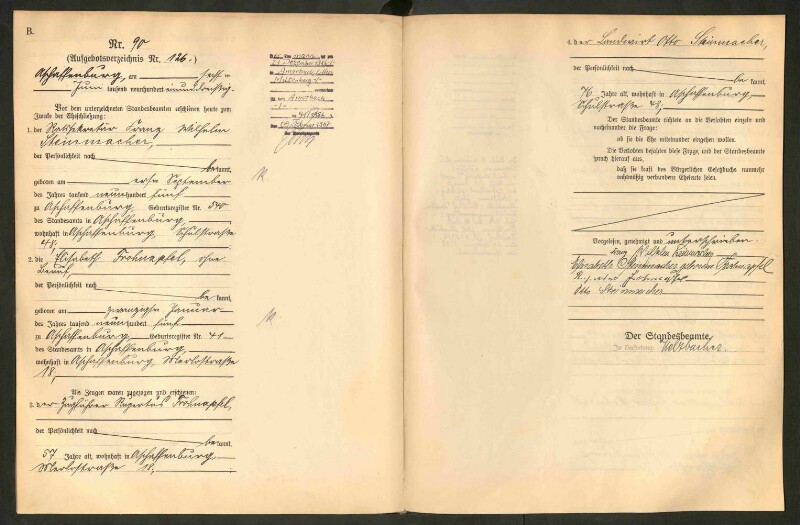 B.
Nr. 90
(Aufgebotsverzeichnis Nr. 126.)
Aschaffenburg, am sechsten
Juni tausend neunhundert einunddreißig.
Vor dem unterzeichneten Standesbeamten erschienen heute zum
Zwecke der Eheschließung:
1. der Ratssekretär Franz Wilhelm
Steinmacher,
der Persönlichkeit nach
bekannt,
geboren am ersten September
des Jahres tausend neunhundert fünf
zu Aschaffenburg Geburtsregister Nr. 540
des Standesamts in Aschaffenburg,
wohnhaft in Aschaffenburg, Schulstraße
48,
2. die Elisabeth Frohnapfel, ohne
Beruf
der Persönlichkeit nach
bekannt,
geboren am zwanzigsten Januar
des Jahres tausend neunhundert fünf
zu Aschaffenburg Geburtsregister Nr. 41
des Standesamts in Aschaffenburg,
wohnhaft in Aschaffenburg, Merlostraße
18,
Als Zeugen waren zugezogen und erschienen:
3. der Zugführer Rupertus Frohnapfel,
der Persönlichkeit nach
bekannt,
57 Jahre alt, wohnhaft in Aschaffenburg,
Merlostraße 18;
4. der Landwirt Otto Steinmacher,
der Persönlichkeit nach
bekannt,
76 Jahre alt, wohnhaft in Aschaffenburg,
Schulstraße 48;
Der Standesbeamte richtete an die Verlobten einzeln und
nacheinander die Frage:
ob sie die Ehe miteinander eingehen wollen.
Die Verlobten bejahten diese Frage, und der Standesbeamte
sprach hierauf aus,
daß sie kraft des Bürgerlichen Gesetzbuchs nunmehr
rechtmäßig verbundene Eheleute seien.
Vorgelesen, genehmigt und unterschrieben.
Franz Wilhelm Steinmacher
Elisabeth Steinmacher, geborene Frohnapfel
Frohnapfel
Otto Steinmacher
Der Standesbeamte
In Vertretung: Welzbacher.